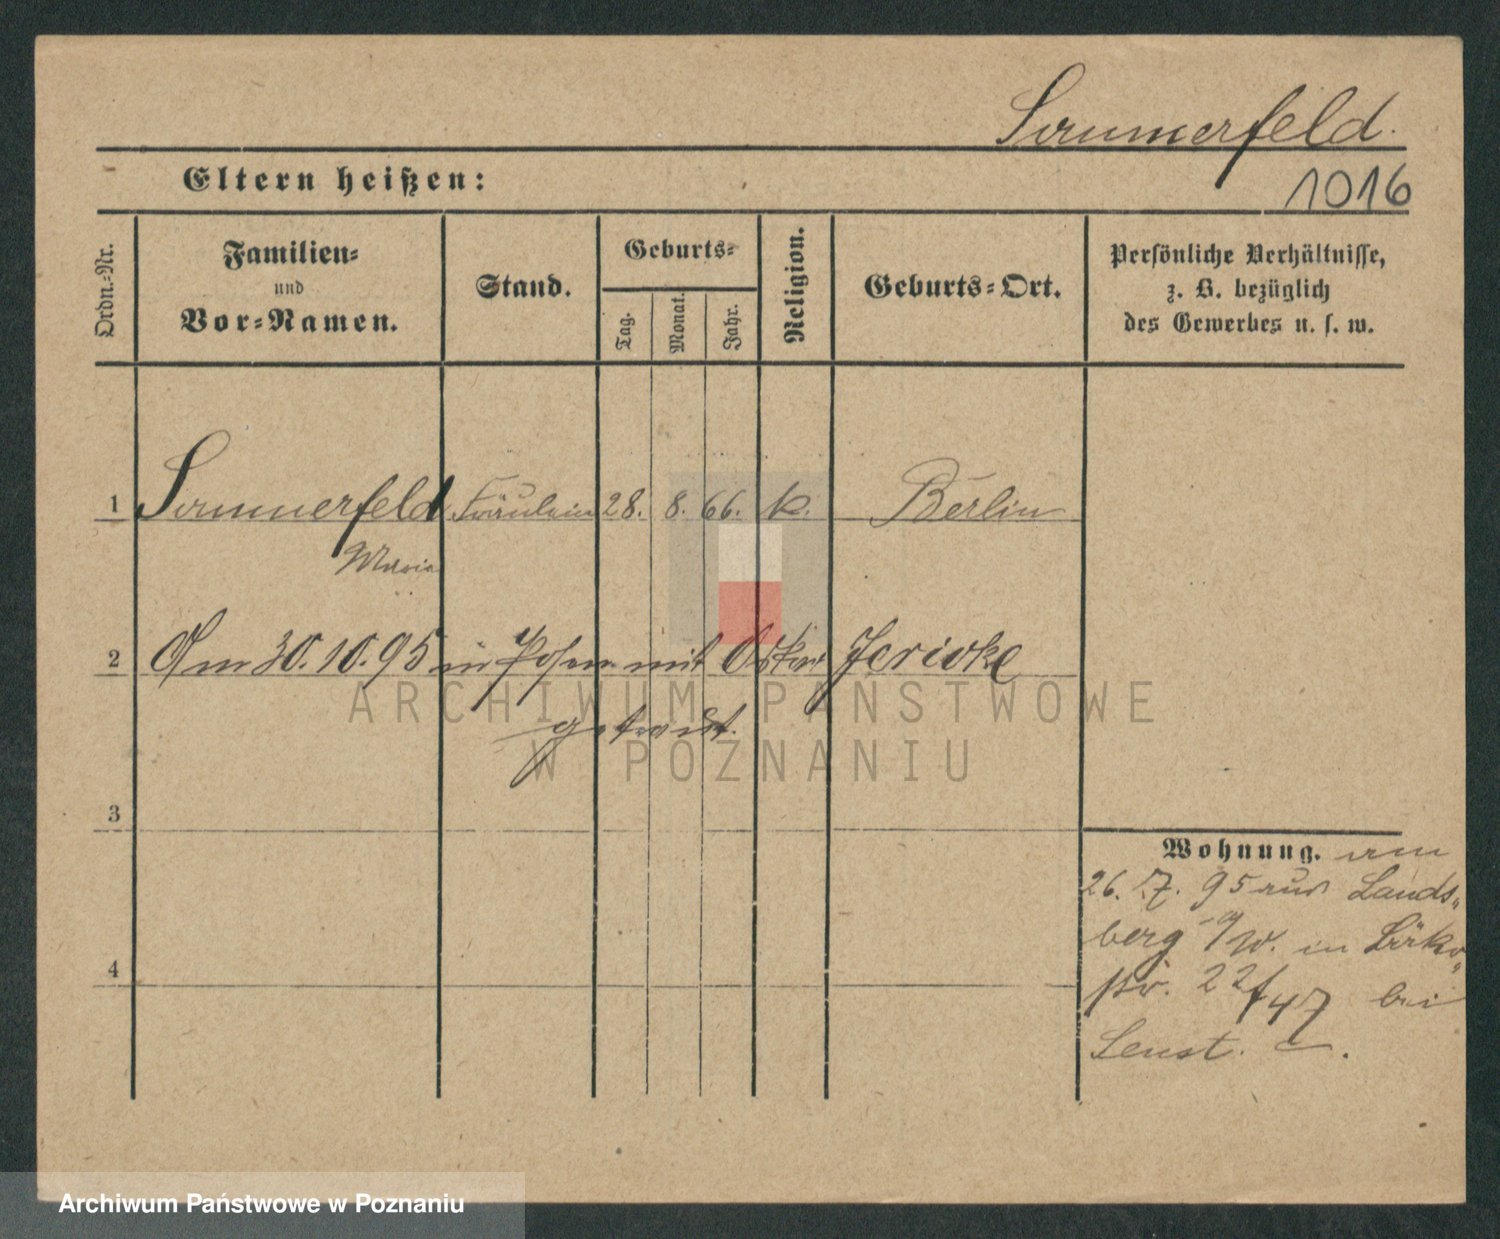 Sommerfeld.
Eltern heißen:
1016
Ordn.-Nr.
Familien-
und
Vor-Namen.
Stand.
Geburts-
Tag.
Monat.
Jahr.
Religion.
Geburts-Ort.
Persönliche Verhältnisse,
z. B. bezüglich
des Gewerbes u. s. w.
1 Sommerfeld Fräulein 28. 8. 66. k. Berlin
Maria
2 Am 30.10.95 in Posen mit Oskar Jericke
getraut.
ARCHIWUM PAŃSTWOWE
W POZNANIU
3
Wohnung. am
26. 7. 95 aus Lands-
berg a/W. in
4
str. 22/47 bei
Archiwum Państwowe w Poznaniu